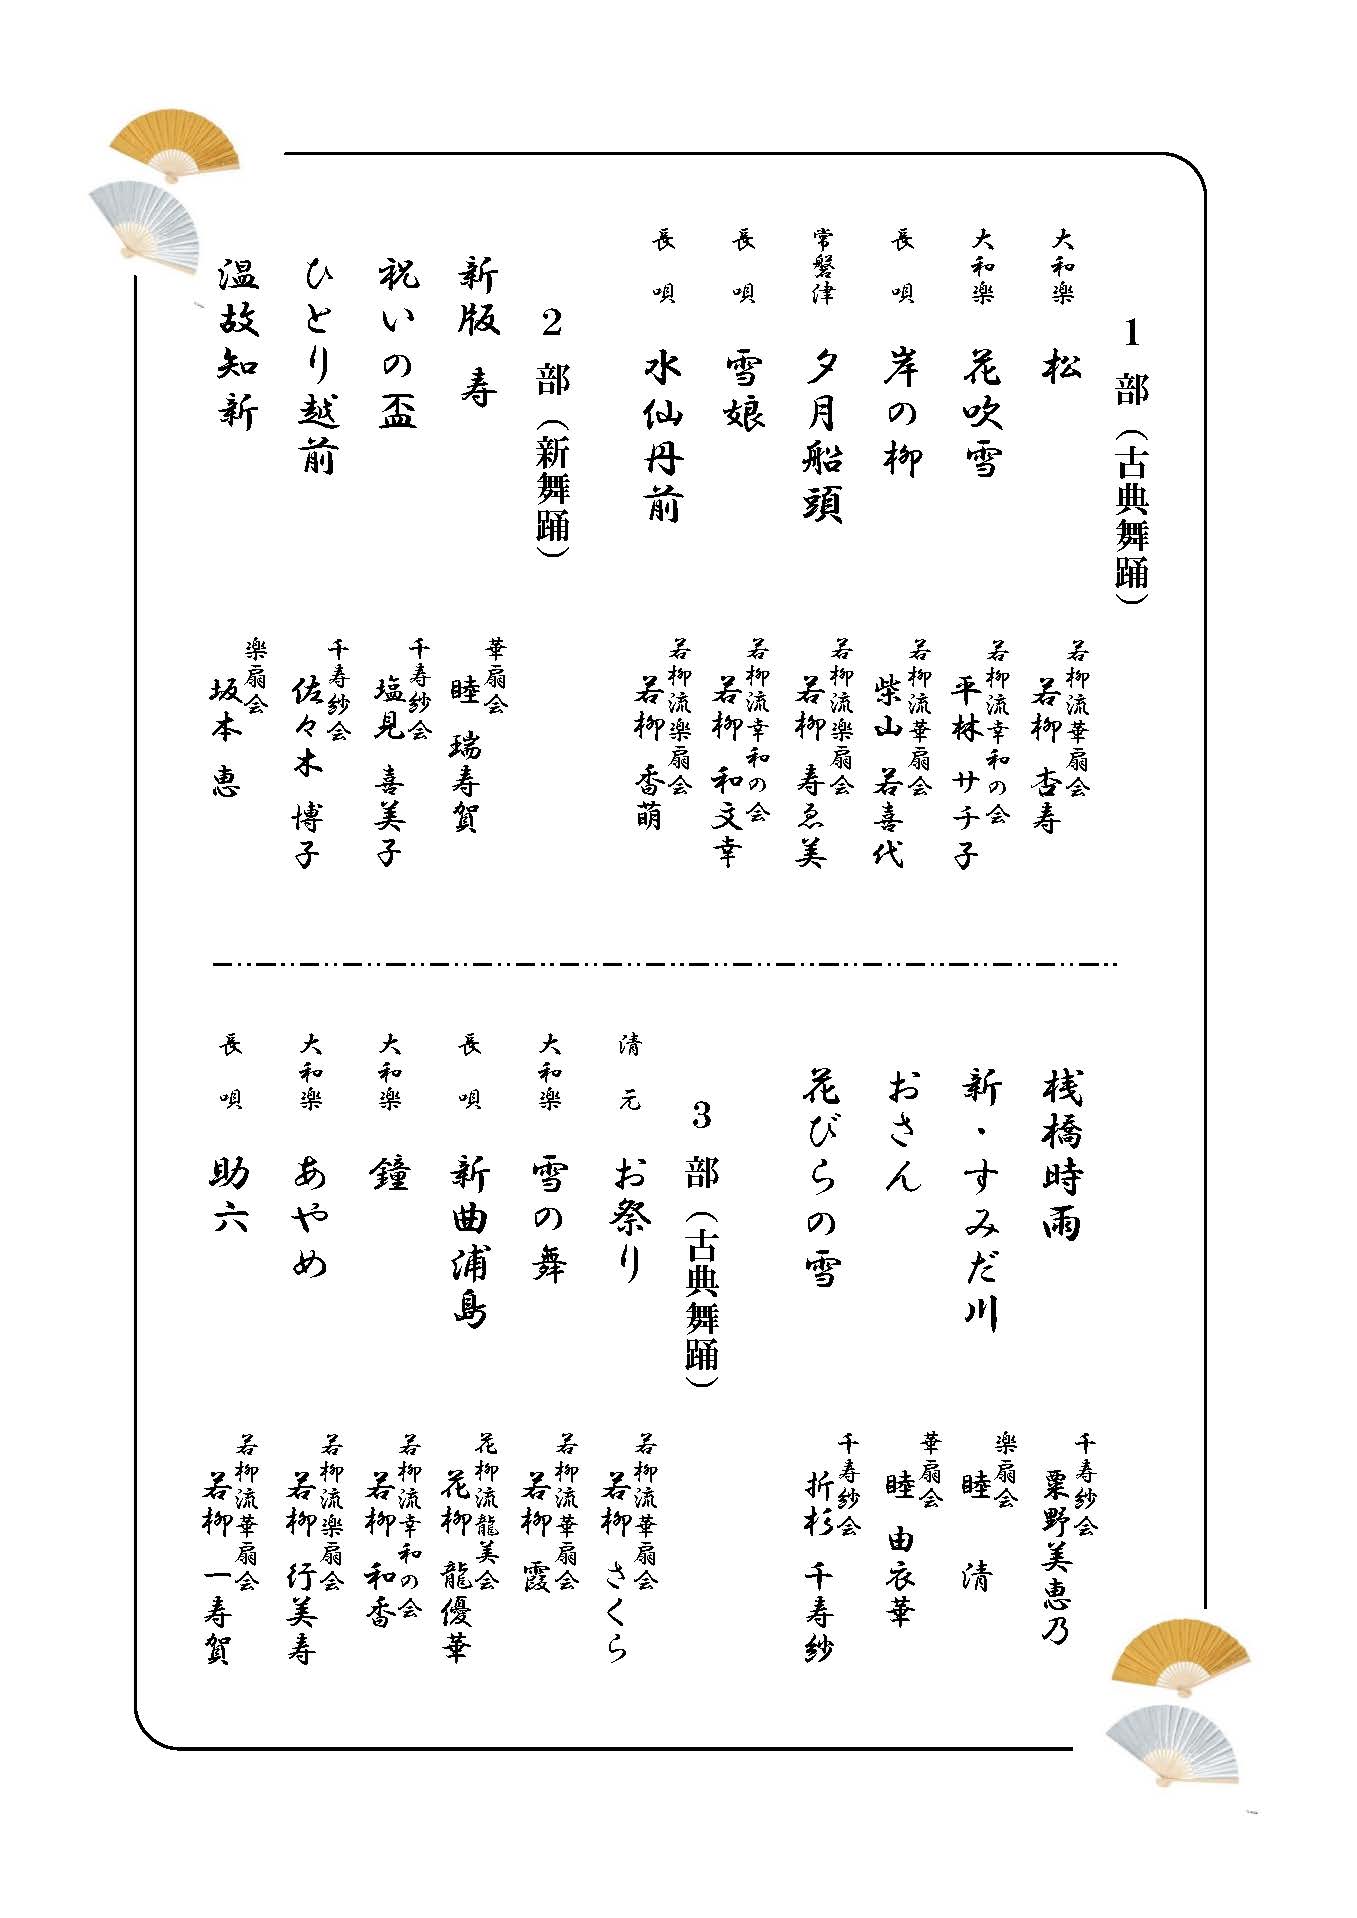 1 部（古典舞踊）
大和楽 松
若柳流華扇会
若柳 杏寿
大和楽 花吹雪
若柳流幸和の会
平林 サチ子
長唄 岸の柳
若柳流華扇会
柴山 若喜代
常磐津 夕月船頭
若柳流楽扇会
若柳 寿ゑ美
長唄 雪娘
若柳流幸和の会
若柳 和文幸
長唄 水仙丹前
若柳流楽扇会
若柳 香萌
2 部（新舞踊）
新版 寿
華扇会
睦 瑞寿賀
祝いの盃
千寿紗会
塩見 喜美子
ひとり越前
千寿紗会
佐々木 博子
温故知新
楽扇会
坂本 恵
桟橋時雨
千寿紗会
粟野美恵乃
新・すみだ川
楽扇会
睦 清
おさん
華扇会
睦 由衣華
花びらの雪
千寿紗会
折杉 千寿紗
3 部（古典舞踊）
清元 お祭り
若柳流華扇会
若柳 さくら
大和楽 雪の舞
若柳流華扇会
若柳 霞
長唄 新曲浦島
花柳流龍美会
花柳 龍優華
大和楽 鐘
若柳流幸和の会
若柳 和香
大和楽 あやめ
若柳流楽扇会
若柳 行美寿
長唄 助六
若柳流華扇会
若柳 一寿賀